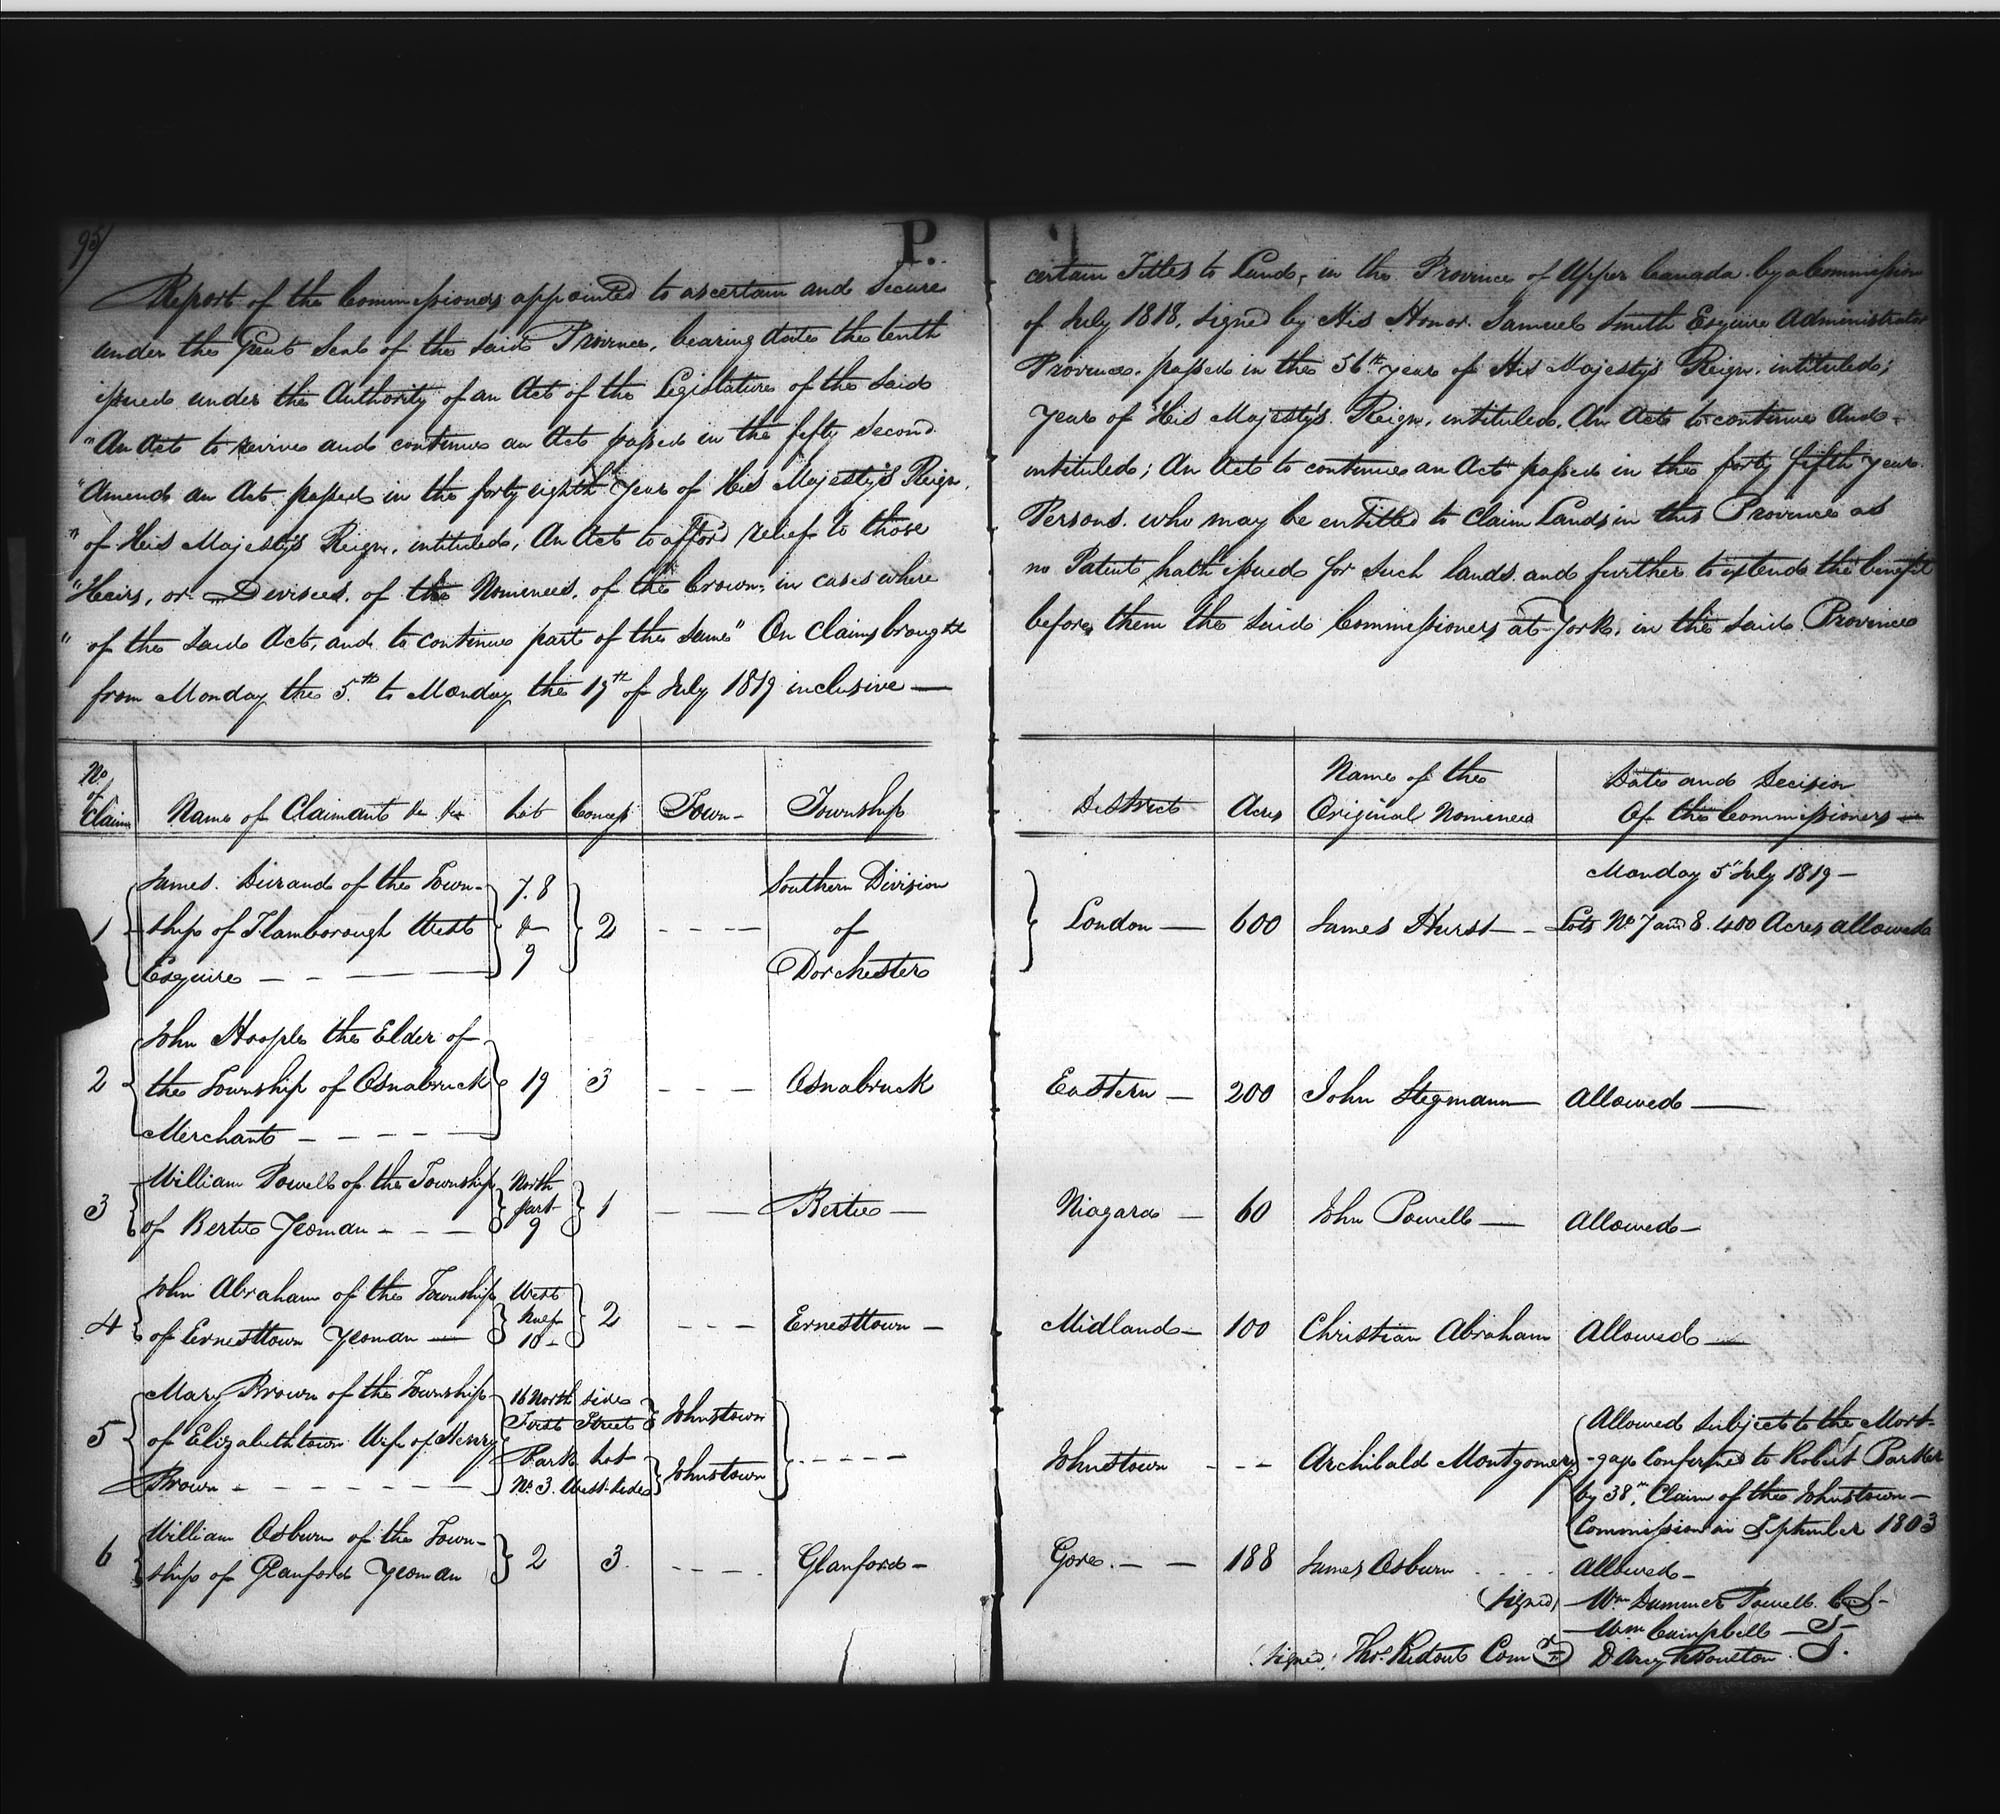 95/
P.
Report of the Commissioners appointed to ascertain and Secure certain Titles to Lands, in the Province of Upper Canada by a Commission
under the Great Seal of the said Province, bearing date the tenth of July 1818, signed by His Honor Samuel Smith Esquire Administrator
issued under the Authority of an Act of the Legislature of the said Province passed in the 56th year of His Majesty's Reign, intituled;
"An Act to revive and continue an Act passed in the fifty second year of His Majesty's Reign, intituled, An Act to continue and
"Amend an Act passed in the forty eighth Year of His Majesty's Reign, intituled; An Act to continue an Act passed in the forty fifth year
"of His Majesty's Reign, intituled, An Act to afford relief to those Persons who may be entitled to claim Lands in this Province as
"Heirs, or Devisees of the Nominees of the Crown, in cases where no Patent hath issued for such lands and further to extend the benefit
"of the said Act, and to continue part of the same" On Claims brought before them the said Commissioners at York, in the said Province
from Monday the 5th to Monday the 19th of July 1819 inclusive —
No. of Claim | Name of Claimant &c &c | Lot | Concess | Town | Township | District | Acres | Name of the Original Nominee | Date and Decision Of the Commissioners
Monday 5th July 1819 —
1 James Durand of the Town-
ship of Flamborough West
Esquire — 7.8 & 9 2 Southern Division of Dorchester London — 600 James Hurst — Lots No 7 and 8. 400 Acres allowed
2 John Hoople the Elder of
the Township of Osnabruck
Merchant — 19 3 Osnabruck Eastern — 200 John Stegmann Allowed —
3 William Powell of the Township
of Bertie Yeoman — North part 9 1 Bertie — Niagara — 60 John Powell — Allowed —
4 John Abraham of the Township
of Ernesttown Yeoman — West half 10 — 2 Ernesttown — Midland — 100 Christian Abraham Allowed —
5 Mary Brown of the Township
of Elizabethtown Wife of Henry
Brown — 16 North side First Street Johnstown
Park Lot No. 3. West side Johnstown
Johnstown Archibald Montgomery Allowed subject to the Mort-
-gage confirmed to Robert Parker
by 38th Claim of the Johnstown
Commission in September 1803
6 William Osburn of the Town-
ship of Glanford Yeoman 2 3 Glanford — Gore — 188 James Osburn Allowed —
(signed) Wm Dummer Powell C.J.
Wm Campbell J.
(signed) Thos. Ridout Comr D'Arcy Boulton J.